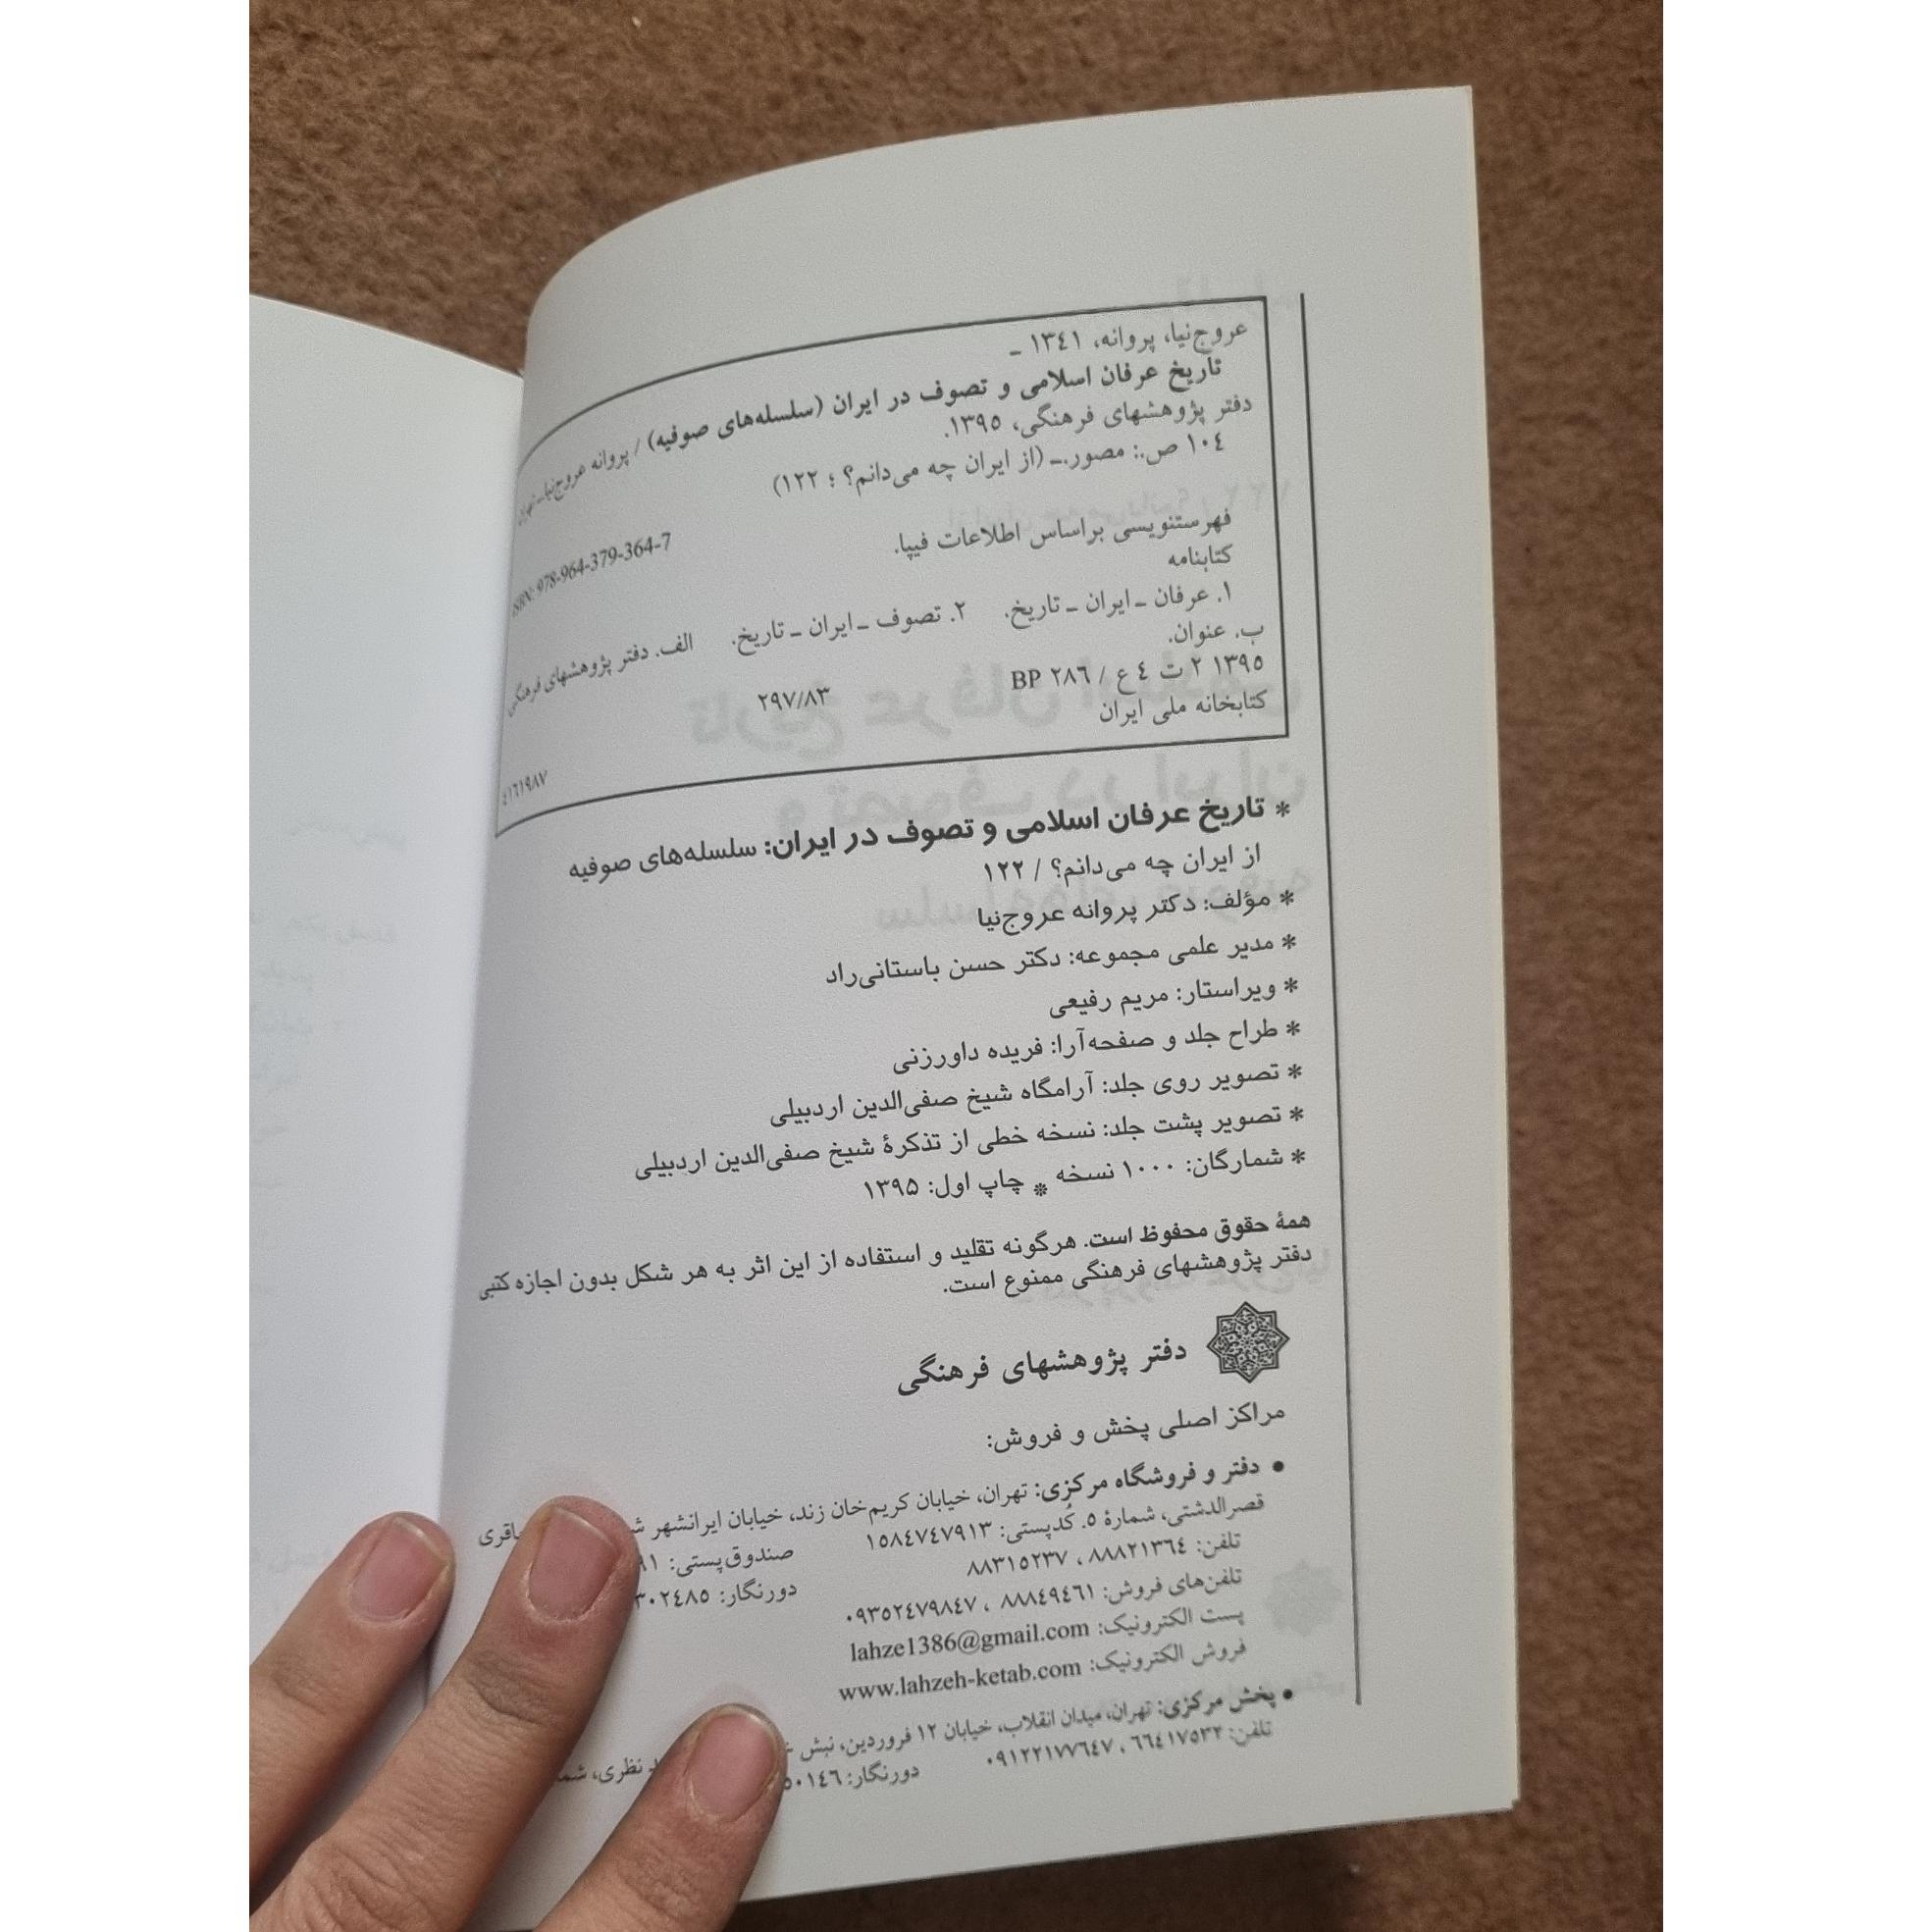 عروج‌نیا، پروانه، ۱۳٤۱ ـ
تاریخ عرفان اسلامی و تصوف در ایران (سلسله‌های صوفیه) / پروانه عروج‌نیا.ـ تهران
دفتر پژوهشهای فرهنگی، ۱۳۹٥.
۱۰٤ ص.: مصور.ـ (از ایران چه می‌دانم؟ ؛ ۱۲۲)
ISBN: 978-964-379-364-7
فهرستنویسی براساس اطلاعات فیپا.
کتابنامه
۱. عرفان ـ ایران ـ تاریخ. ۲. تصوف ـ ایران ـ تاریخ. الف. دفتر پژوهشهای فرهنگی
ب. عنوان.
۱۳۹٥ ۲ ت ٤ ع / ۲۸٦ BP ۲۹۷/۸۳
کتابخانه ملی ایران ٤۱٦۱۹۸۷
* تاریخ عرفان اسلامی و تصوف در ایران: سلسله‌های صوفیه
از ایران چه می‌دانم؟ / ۱۲۲
* مؤلف: دکتر پروانه عروج‌نیا
* مدیر علمی مجموعه: دکتر حسن باستانی‌راد
* ویراستار: مریم رفیعی
* طراح جلد و صفحه‌آرا: فریده داورزنی
* تصویر روی جلد: آرامگاه شیخ صفی‌الدین اردبیلی
* تصویر پشت جلد: نسخه خطی از تذکرهٔ شیخ صفی‌الدین اردبیلی
* شمارگان: ۱۰۰۰ نسخه * چاپ اول: ۱۳۹۵
همهٔ حقوق محفوظ است. هرگونه تقلید و استفاده از این اثر به هر شکل بدون اجازه کتبی
دفتر پژوهشهای فرهنگی ممنوع است.
دفتر پژوهشهای فرهنگی
مراکز اصلی پخش و فروش:
• دفتر و فروشگاه مرکزی: تهران، خیابان کریم‌خان زند، خیابان ایرانشهر
قصرالدشتی، شمارهٔ ٥. کُدپستی: ۱٥۸٤۷٤۷۹۱۳ صندوق‌پستی:
تلفن: ۸۸۸۲۱۳٦٤ ، ۸۸۳۱٥۲۳۷ دورنگار:
تلفن‌های فروش: ۸۸۸٤۹٤٦۱ ، ۰۹۳٥۲٤۷۹۸٤۷
پست الکترونیک: lahze1386@gmail.com
فروش الکترونیک: www.lahzeh-ketab.com
• پخش مرکزی: تهران، میدان انقلاب، خیابان ۱۲ فروردین، نبش نظری،
تلفن: ٦٦٤۱۷٥۳۲ ، ۰۹۱۲۲۱۷۷٦٤۷ دورنگار: